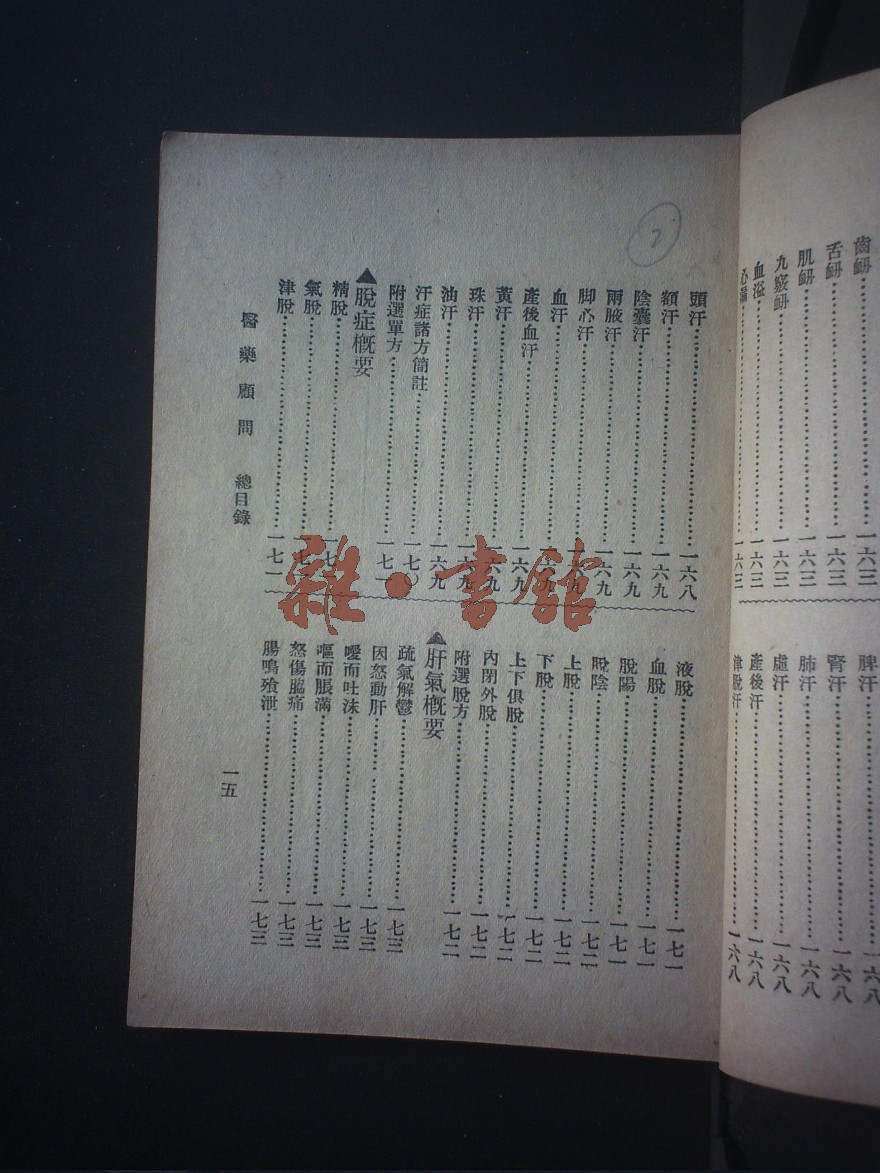 齒衄……一六三
舌衄……一六三
肌衄……一六三
九竅衄……一六三
血溢……一六三
一六三
脾汗……一六八
腎汗……一六八
肺汗……一六八
虛汗……一六八
產後汗……一六八
津脫汗……一六八
2
頭汗……一六八
額汗……一六九
陰囊汗……一六九
兩腋汗……一六九
脚心汗……一六九
血汗……一六九
產後血汗……一六九
黃汗……一六九
珠汗……一六九
油汗……一六九
汗症諸方簡註……一七〇
附選單方……一七一
▲脫症概要
精脫……一七
氣脫……七
津脫……一七一
液脫……一七一
血脫……一七一
脫陽……一七一
脫陰……一七二
上脫……一七二
下脫……一七二
上下俱脫……一七二
內閉外脫……一七二
附選脫方……一七二
▲肝氣概要
疏氣解鬱……一七三
因怒動肝……一七三
噯而吐沫……一七三
嘔而脹滿……一七三
怒傷脇痛……一七三
腸鳴飱泄……一七三
醫藥顧問 總目錄
一五
雜·書館